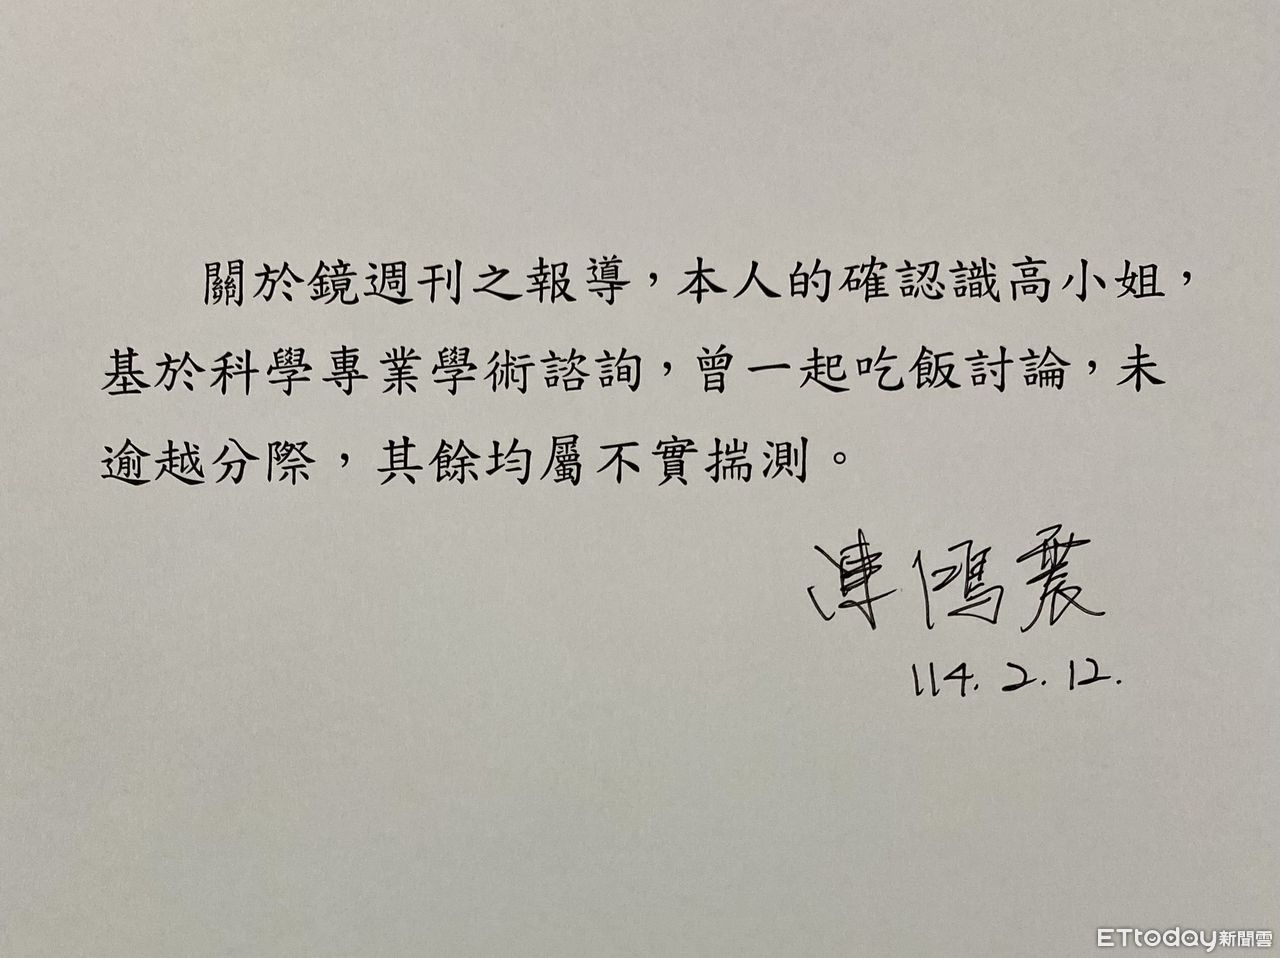 關於鏡週刊之報導，本人的確認識高小姐，
基於科學專業學術諮詢，曾一起吃飯討論，未
逾越分際，其餘均屬不實揣測。
陳鴻震
114.2.12.
ETtoday新聞雲